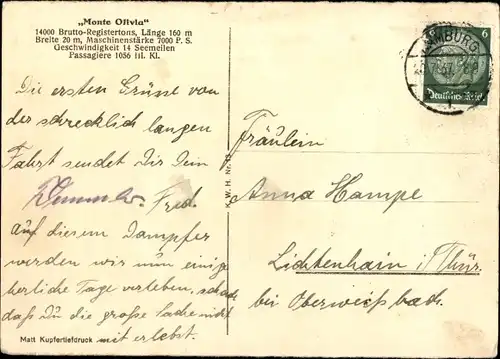 „Monte Olivia"
14000 Brutto-Registertons, Länge 160 m
Breite 20 m, Maschinenstärke 7000 P. S.
Geschwindigkeit 14 Seemeilen
Passagiere 1056 III. Kl.
Die ersten Grüsse von
der schrecklich langen
Fahrt sendet Dir Dein
Fred.
auf diesem Dampfer
werden wir nun einige
herliche Tage verleben, schade
daß Du die große Sache nicht
mit erlebst.
Matt Kupfertiefdruck
K. W. H. Nr.
HAMBURG
1
6
Deutsches Reich
Fräulein
Anna Hampe
Lichtenhain i/Thür.
bei Oberweißbach.